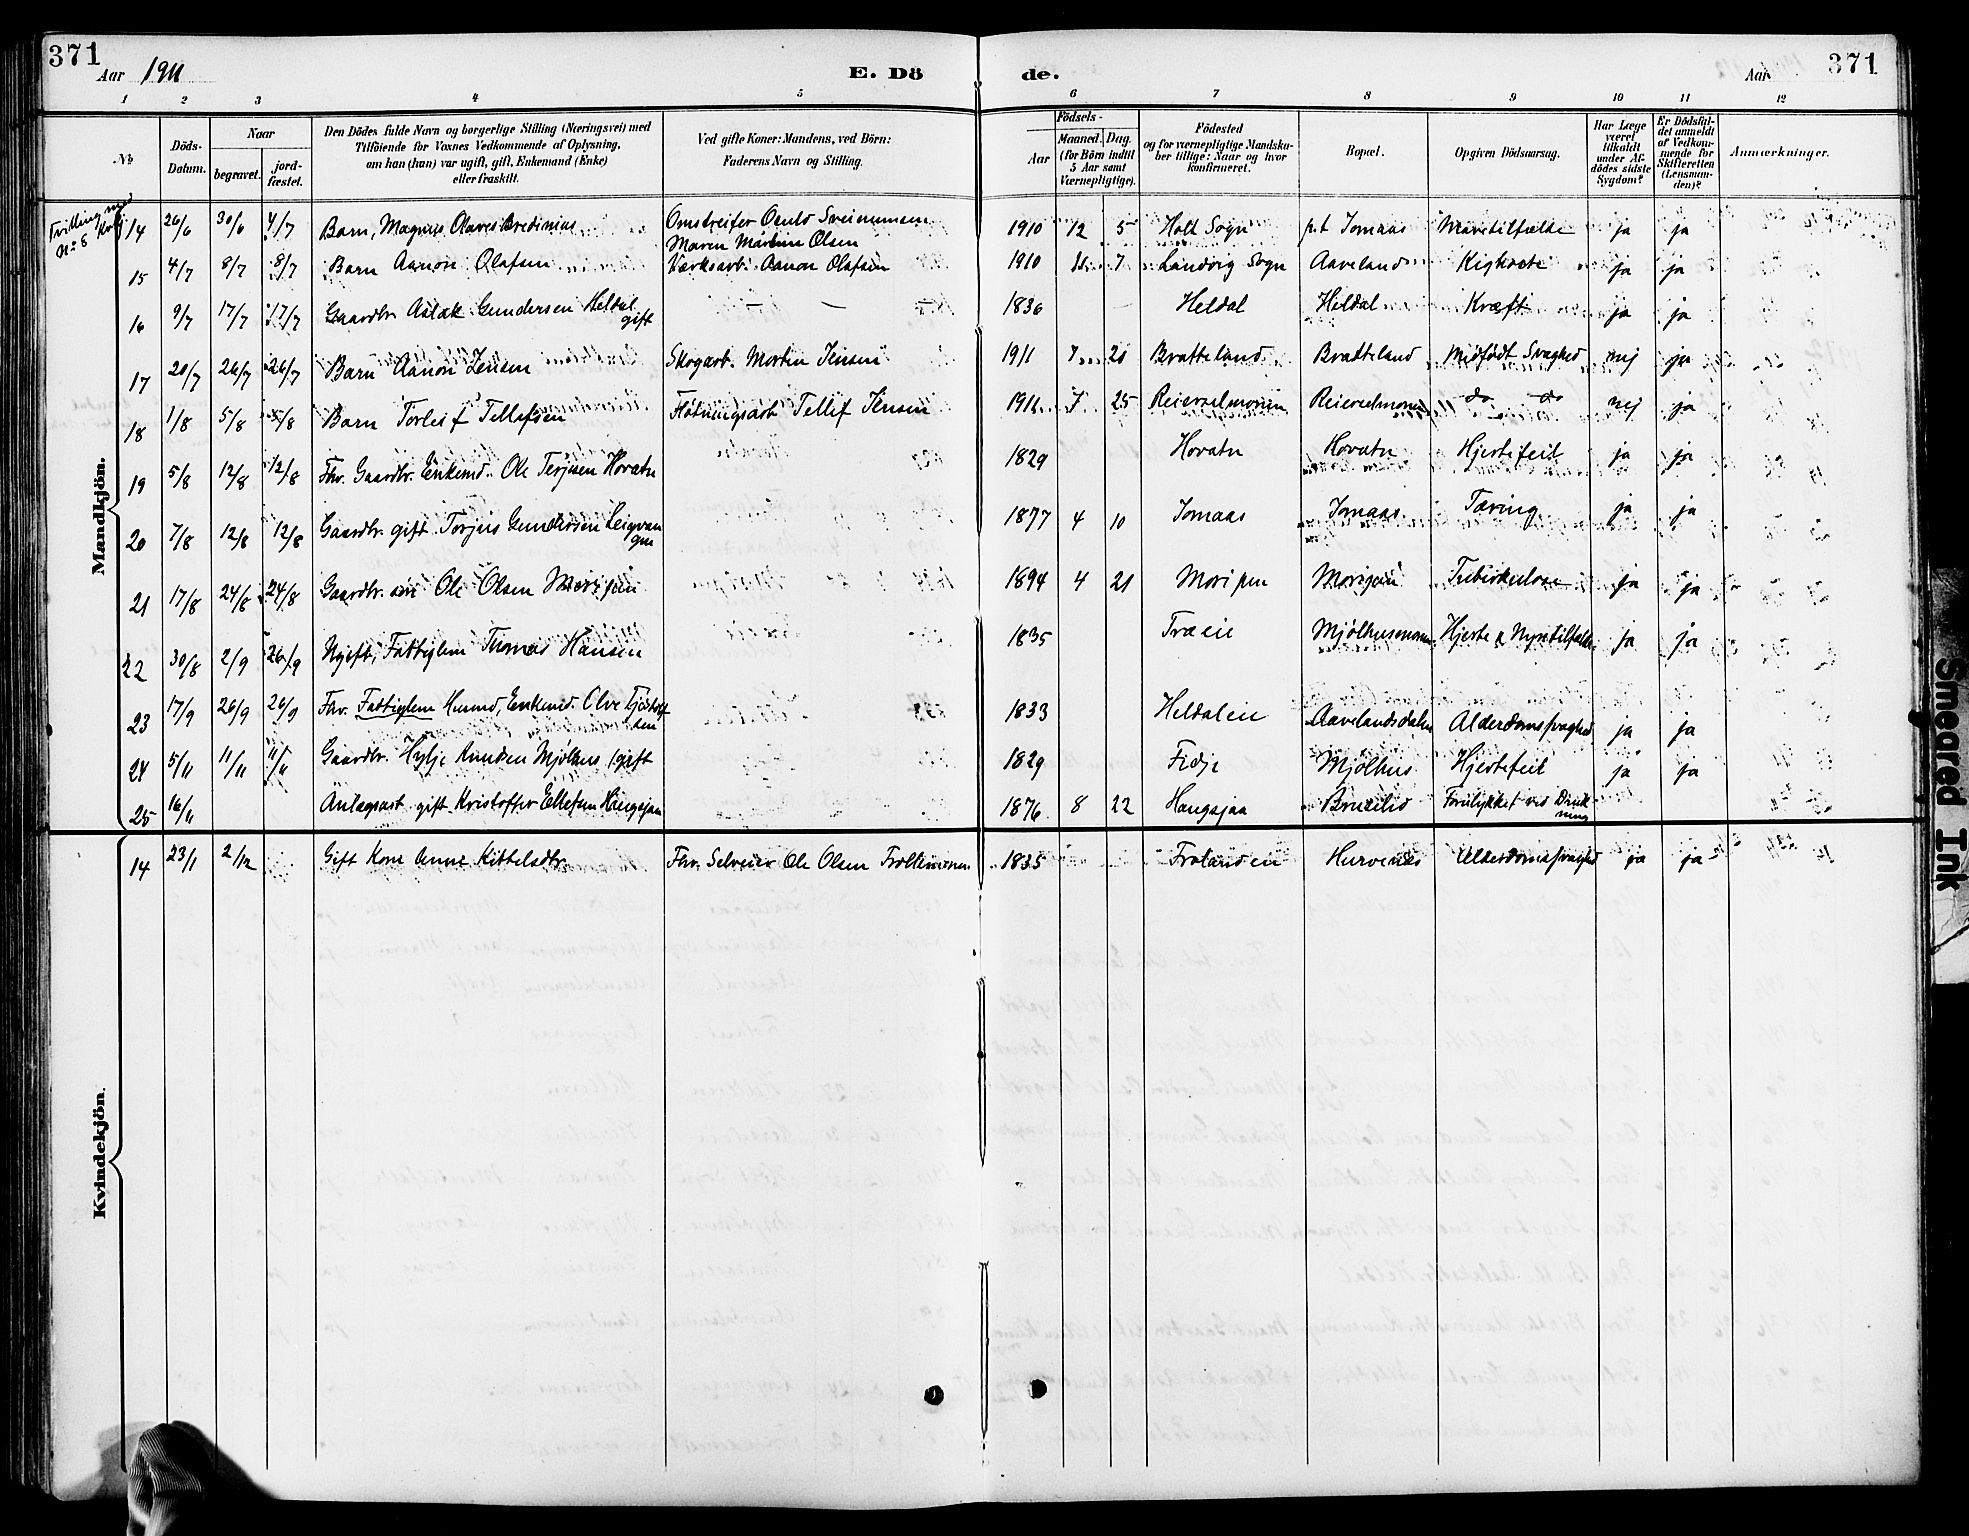 371
Aar 1911
E. Dö
de.
Aar
371
1 2 3 4 5 6 7 8 9 10 11 12
No
Döds-Datum.
Naar
begravet.
jord-fæstet.
Den Dödes fulde Navn og borgerlige Stilling (Næringsvei) med
Tilföiende for Voxnes Vedkommende af Oplysning,
om han (hun) var ugift, gift, Enkemand (Enke)
eller fraskilt.
Ved gifte Koner: Mandens, ved Börn:
Faderens Navn og Stilling.
Födsels-
Aar
Maaned. Dag.
(for Börn indtil
5 Aar samt
Værnepligtige).
Födested
og for værnepligtige Mandska-
ber tillige: Naar og hvor
konfirmeret.
Bopæl.
Opgiven Dödsaarsag.
Har Læge
været
tilkaldt
under Af-
dödes sidste
Sygdom?
Er Dödsfal-
det anmeldt
af Vedkom-
mende for
Skifteretten
(Lensman-
den)?
Anmærkninger.
Mandkjön.
Tvilling med
No 8 Kvkj
14 26/6 30/6 4/7 Barn, Magnus Olaves Bredinius Omstreifer Oculo Sveinunsen 1910 12 5 Holt Sogn p.t Jomaas Mavetilfælde ja ja
Maren Martine Olsen
15 4/7 8/7 8/7 Barn Aanon Olafsen Værksarb. Aanon Olafsen 1910 11 7 Landvig Sogn Aaveland Kighoste ja ja
16 9/7 17/7 17/7 Gaardbr. Aslak Gundersen Heldal gift — — 1836 — Heldal Heldal Kræft ja ja
17 20/7 26/7 26/7 Barn Aanon Jensen Skogarb. Morten Jensen 1911 7 20 Bratteland Bratteland Medfødt Svaghed nej ja
18 1/8 5/8 5/8 Barn Torleif Tellefsen Fløtningsarb Tellef Jensen 1911 7 25 Reierselmonen Reierselmonen do do nej ja
19 5/8 12/8 12/8 Fhv. Gaardbr. Enkemd. Ole Terjesen Hovatn 1829 Hovatn Hovatn Hjertefeil ja ja
20 7/8 12/8 12/8 Gaardbr. gift Torjus Gundersen 1877 4 10 Jomaas Jomaas Tæring ja ja
21 17/8 24/8 24/8 Gaardbr. søn Ole Olsen Morejen 1894 4 21 Morejen Morejen Tuberkulose ja ja
22 30/8 2/9 26/9 Ugift, Fattiglem Thomas Hansen 1835 Træeie Mjølhusmonen Hjerte & Nyretilfælde ja ja
23 17/9 26/9 26/9 Fhv. Fattiglem Husmd, Enkemd. Olve Tjøstolf sen 1833 Heldaleie Aavelandsdalen Alderdomssvaghed ja ja
24 5/11 11/11 11/11 Gaardbr. Hylje Knudsen Mjølhus (gift 1829 Fidje Mjølhus Hjertefeil ja ja
25 16/11 Anlægsarb gift Kristoffer Ellefsen Haugsjaa 1876 8 22 Haugsjaa Brustlid Forulykket ved Druk-
ning
Kvindekjön.
14 23/1 2/12 Gift Kone Anne Kittelsdtr. Fhv. Selveier Ole Olsen 1835 Frolandeie Hurvenes Alderdomssvaghed ja ja
Smeared Ink